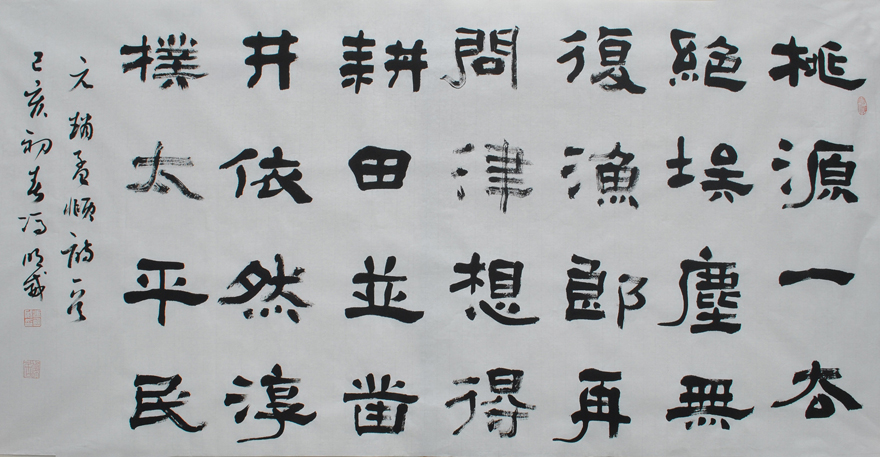 桃源一厺
絕埃塵無
復漁郎再
問津想得
耕田並凿
井依然淳
樸太平民
元趙孟頫詩一首
己亥初春馮